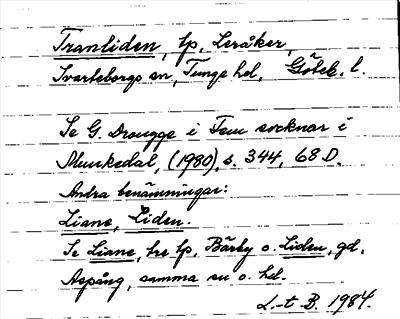 Tranliden, tp, Leråker,
Svarteborgs sn, Tunge hd, Göteb. l.
Se G. Drougge i Fem socknar i
Munkedal, (1980), s. 344, 68 D.
Andra benämningar:
Liane, Liden.
Se Liane, tre tp, Bärby o. Liden, gd.
Aspång, samma sn o. hd.
L-t B. 1984.